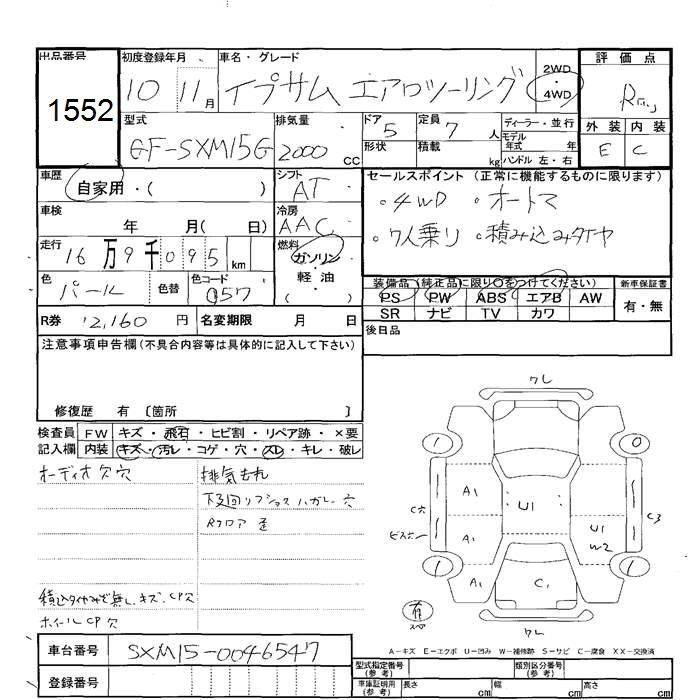 出品番号
1552
初度登録年月 10 11月
車名・グレード イプサム エアロツーリング
2WD・4WD
評価点
R
型式 GF-SXM15G
排気量 2000 CC
ドア 5
形状
定員 7 人
積載 kg
ディーラー・並行
モデル年式 年
ハンドル 左・右
外装 内装
E C
車歴 自家用・( )
シフト AT
セールスポイント (正常に機能するものに限ります)
・4WD ・オートマ
・7人乗り ・積み込みタイヤ
車検 年 月( 日)
冷房 AAC
走行 16万9千095 km
燃料 ガソリン・軽油( )
色 パール 色替 色コード 057
装備品(純正品に限り○をつけてください) 新車保証書
PS PW ABS エアB AW 有・無
SR ナビ TV カワ
R券 12,160 円 名変期限 月 日
後日品
注意事項申告欄(不具合内容等は具体的に記入して下さい)
修復歴 有 〔箇所 〕
検査員 FW キズ・飛石・ヒビ割・リペア跡・×要
記入欄 内装 キズ・汚レ・コゲ・穴・スレ・キレ・破レ
オーディオ欠穴 排気もれ
下廻り
Rフロア 歪
積込タイヤみぞ無し.キズ.CP穴
ホイールCP欠
ワレ
1 0
A1
C穴 A1 U1 U1 W2 C3
1 A1 C1 1
有
スペア
ワレ
A-キズ E-エクボ U-凹み W-補修跡 S-サビ C-腐食 XX-交換済
車台番号 SXM15-0046547
登録番号
型式指定番号(参考) 類別区分番号(参考)
車庫証明用(参考) 長さ cm 幅 cm 高さ cm